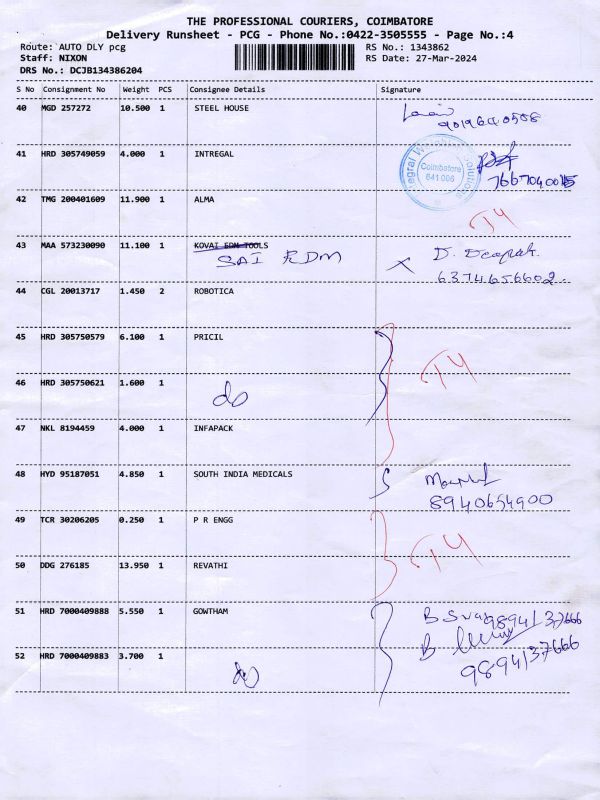 THE PROFESSIONAL COURIERS, COIMBATORE
Delivery Runsheet - PCG - Phone No.:0422-3505555 - Page No.:4
Route: AUTO DLY pcg RS No.: 1343862
Staff: NIXON RS Date: 27-Mar-2024
DRS No.: DCJB134386204
S No Consignment No Weight PCS Consignee Details Signature
40 MGD 257272 10.500 1 STEEL HOUSE
9019640508
41 HRD 305749059 4.000 1 INTREGAL
Coimbatore
641 006
7667040015
42 TMG 200401609 11.900 1 ALMA
T4
43 MAA 573230090 11.100 1 KOVAI EDM TOOLS
SAI EDM
D. Deepak
6374656602
44 CGL 20013717 1.450 2 ROBOTICA
45 HRD 305750579 6.100 1 PRICIL
T4
46 HRD 305750621 1.600 1
do
47 NKL 8194459 4.000 1 INFAPACK
48 HYD 95187051 4.850 1 SOUTH INDIA MEDICALS
8940654900
49 TCR 30206205 0.250 1 P R ENGG
T4
50 DDG 276185 13.950 1 REVATHI
51 HRD 7000409888 5.550 1 GOWTHAM
9894137666
52 HRD 7000409883 3.700 1
do
9894137666